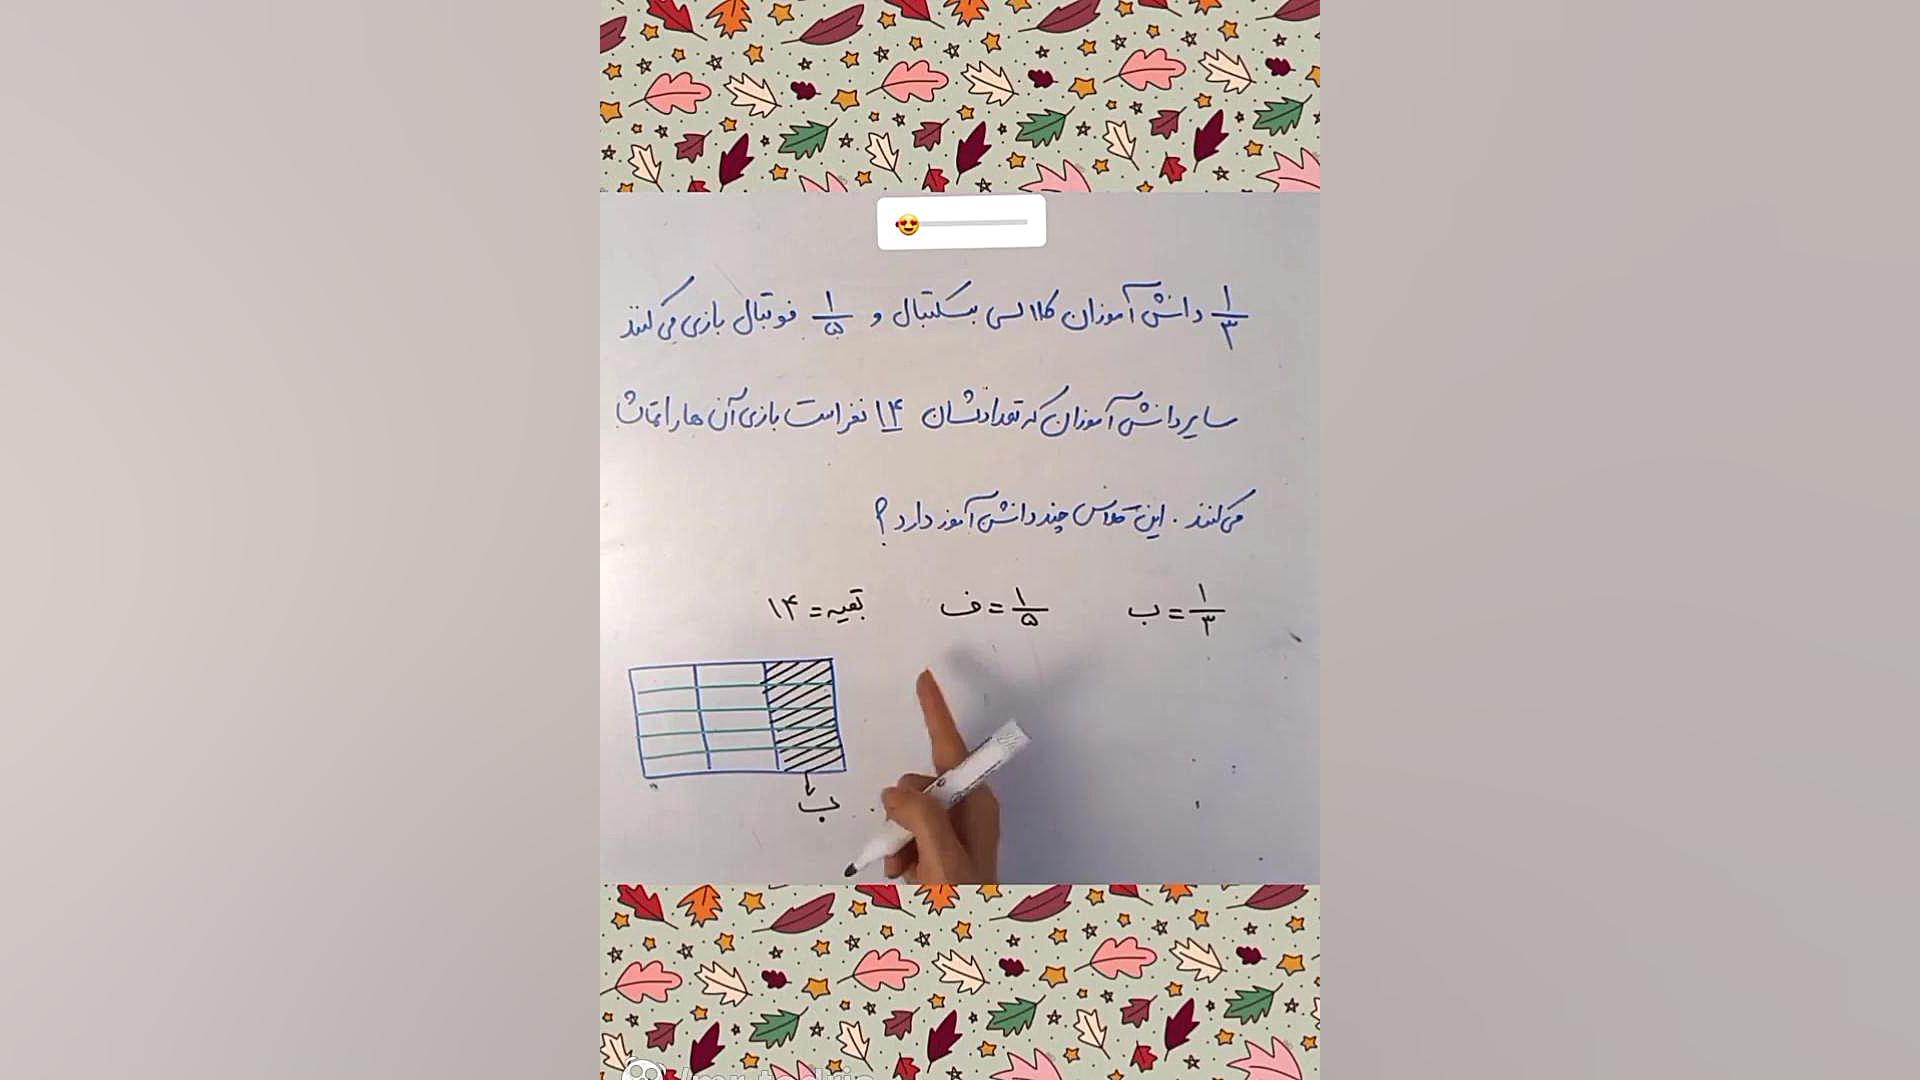 ۱/۳ دانش آموزان کلاسی بسکتبال و ۱/۵ فوتبال بازی می کنند
سایر دانش آموزان که تعدادشان ۱۴ نفر است بازی آن ها را تماشا
می کنند . این کلاس چند دانش آموز دارد ؟
۱/۳ = ب ۱/۵ = ف بقیه = ۱۴
ب